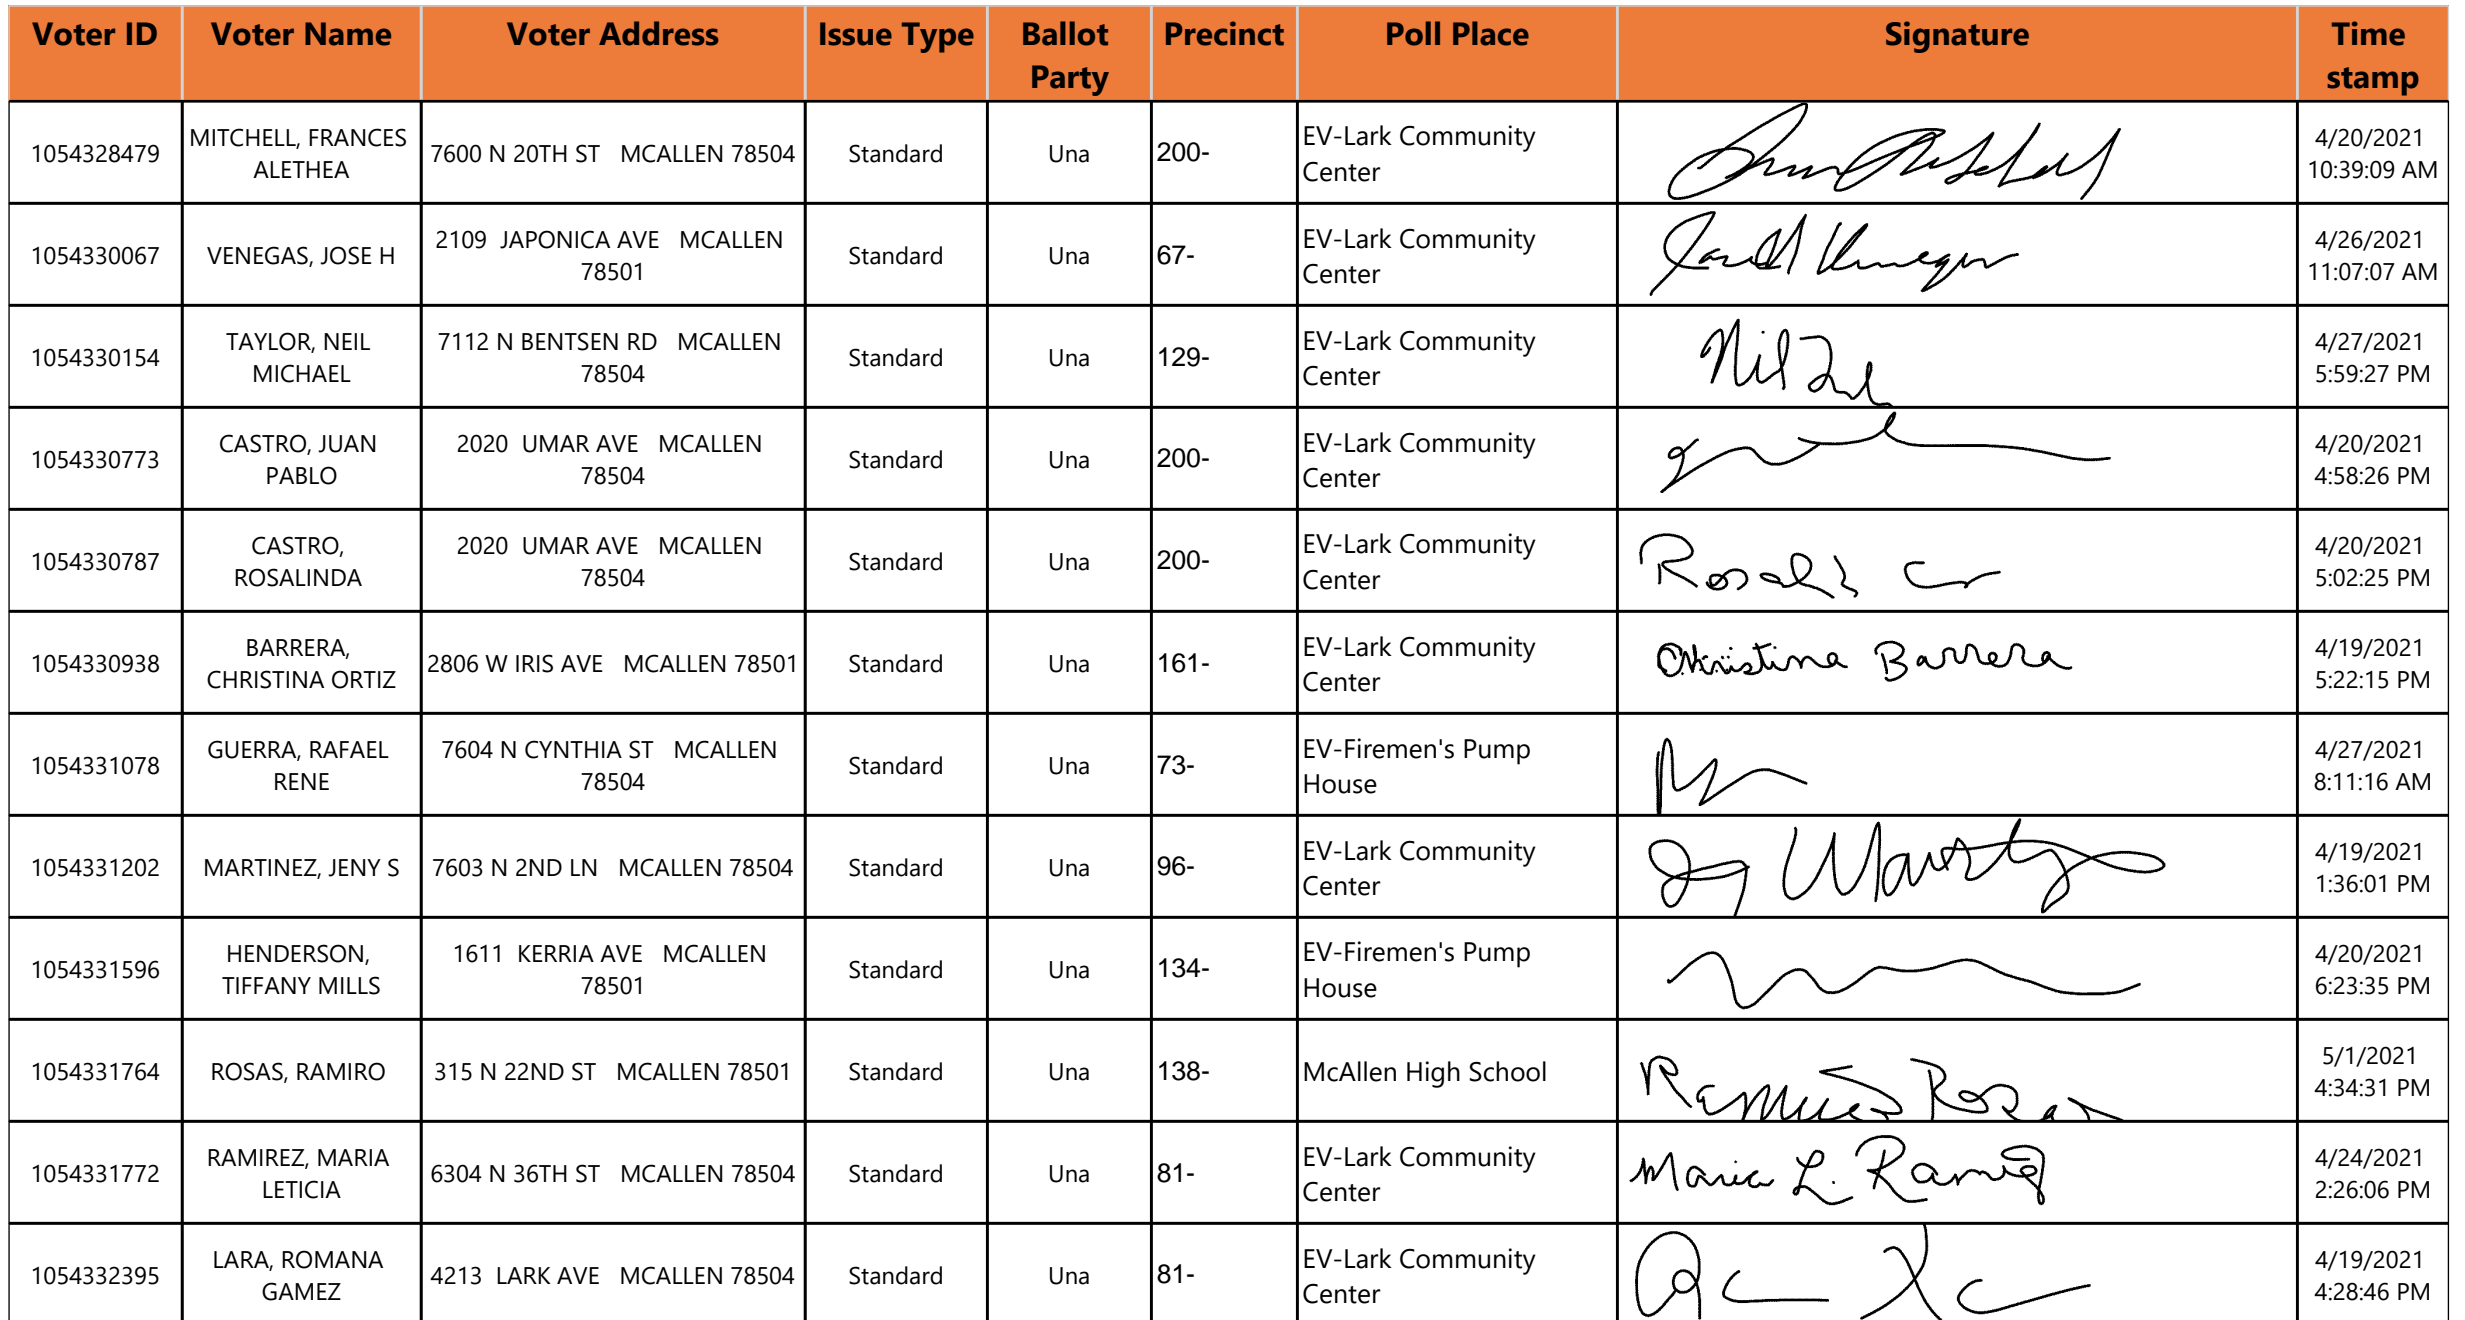 Voter ID Voter Name Voter Address Issue Type Ballot Party Precinct Poll Place Signature Time stamp
1054328479 MITCHELL, FRANCES ALETHEA 7600 N 20TH ST MCALLEN 78504 Standard Una 200- EV-Lark Community Center 4/20/2021 10:39:09 AM
1054330067 VENEGAS, JOSE H 2109 JAPONICA AVE MCALLEN 78501 Standard Una 67- EV-Lark Community Center 4/26/2021 11:07:07 AM
1054330154 TAYLOR, NEIL MICHAEL 7112 N BENTSEN RD MCALLEN 78504 Standard Una 129- EV-Lark Community Center 4/27/2021 5:59:27 PM
1054330773 CASTRO, JUAN PABLO 2020 UMAR AVE MCALLEN 78504 Standard Una 200- EV-Lark Community Center 4/20/2021 4:58:26 PM
1054330787 CASTRO, ROSALINDA 2020 UMAR AVE MCALLEN 78504 Standard Una 200- EV-Lark Community Center 4/20/2021 5:02:25 PM
1054330938 BARRERA, CHRISTINA ORTIZ 2806 W IRIS AVE MCALLEN 78501 Standard Una 161- EV-Lark Community Center Christina Barrera 4/19/2021 5:22:15 PM
1054331078 GUERRA, RAFAEL RENE 7604 N CYNTHIA ST MCALLEN 78504 Standard Una 73- EV-Firemen's Pump House 4/27/2021 8:11:16 AM
1054331202 MARTINEZ, JENY S 7603 N 2ND LN MCALLEN 78504 Standard Una 96- EV-Lark Community Center 4/19/2021 1:36:01 PM
1054331596 HENDERSON, TIFFANY MILLS 1611 KERRIA AVE MCALLEN 78501 Standard Una 134- EV-Firemen's Pump House 4/20/2021 6:23:35 PM
1054331764 ROSAS, RAMIRO 315 N 22ND ST MCALLEN 78501 Standard Una 138- McAllen High School Ramiro Rosas 5/1/2021 4:34:31 PM
1054331772 RAMIREZ, MARIA LETICIA 6304 N 36TH ST MCALLEN 78504 Standard Una 81- EV-Lark Community Center Maria L. 4/24/2021 2:26:06 PM
1054332395 LARA, ROMANA GAMEZ 4213 LARK AVE MCALLEN 78504 Standard Una 81- EV-Lark Community Center 4/19/2021 4:28:46 PM